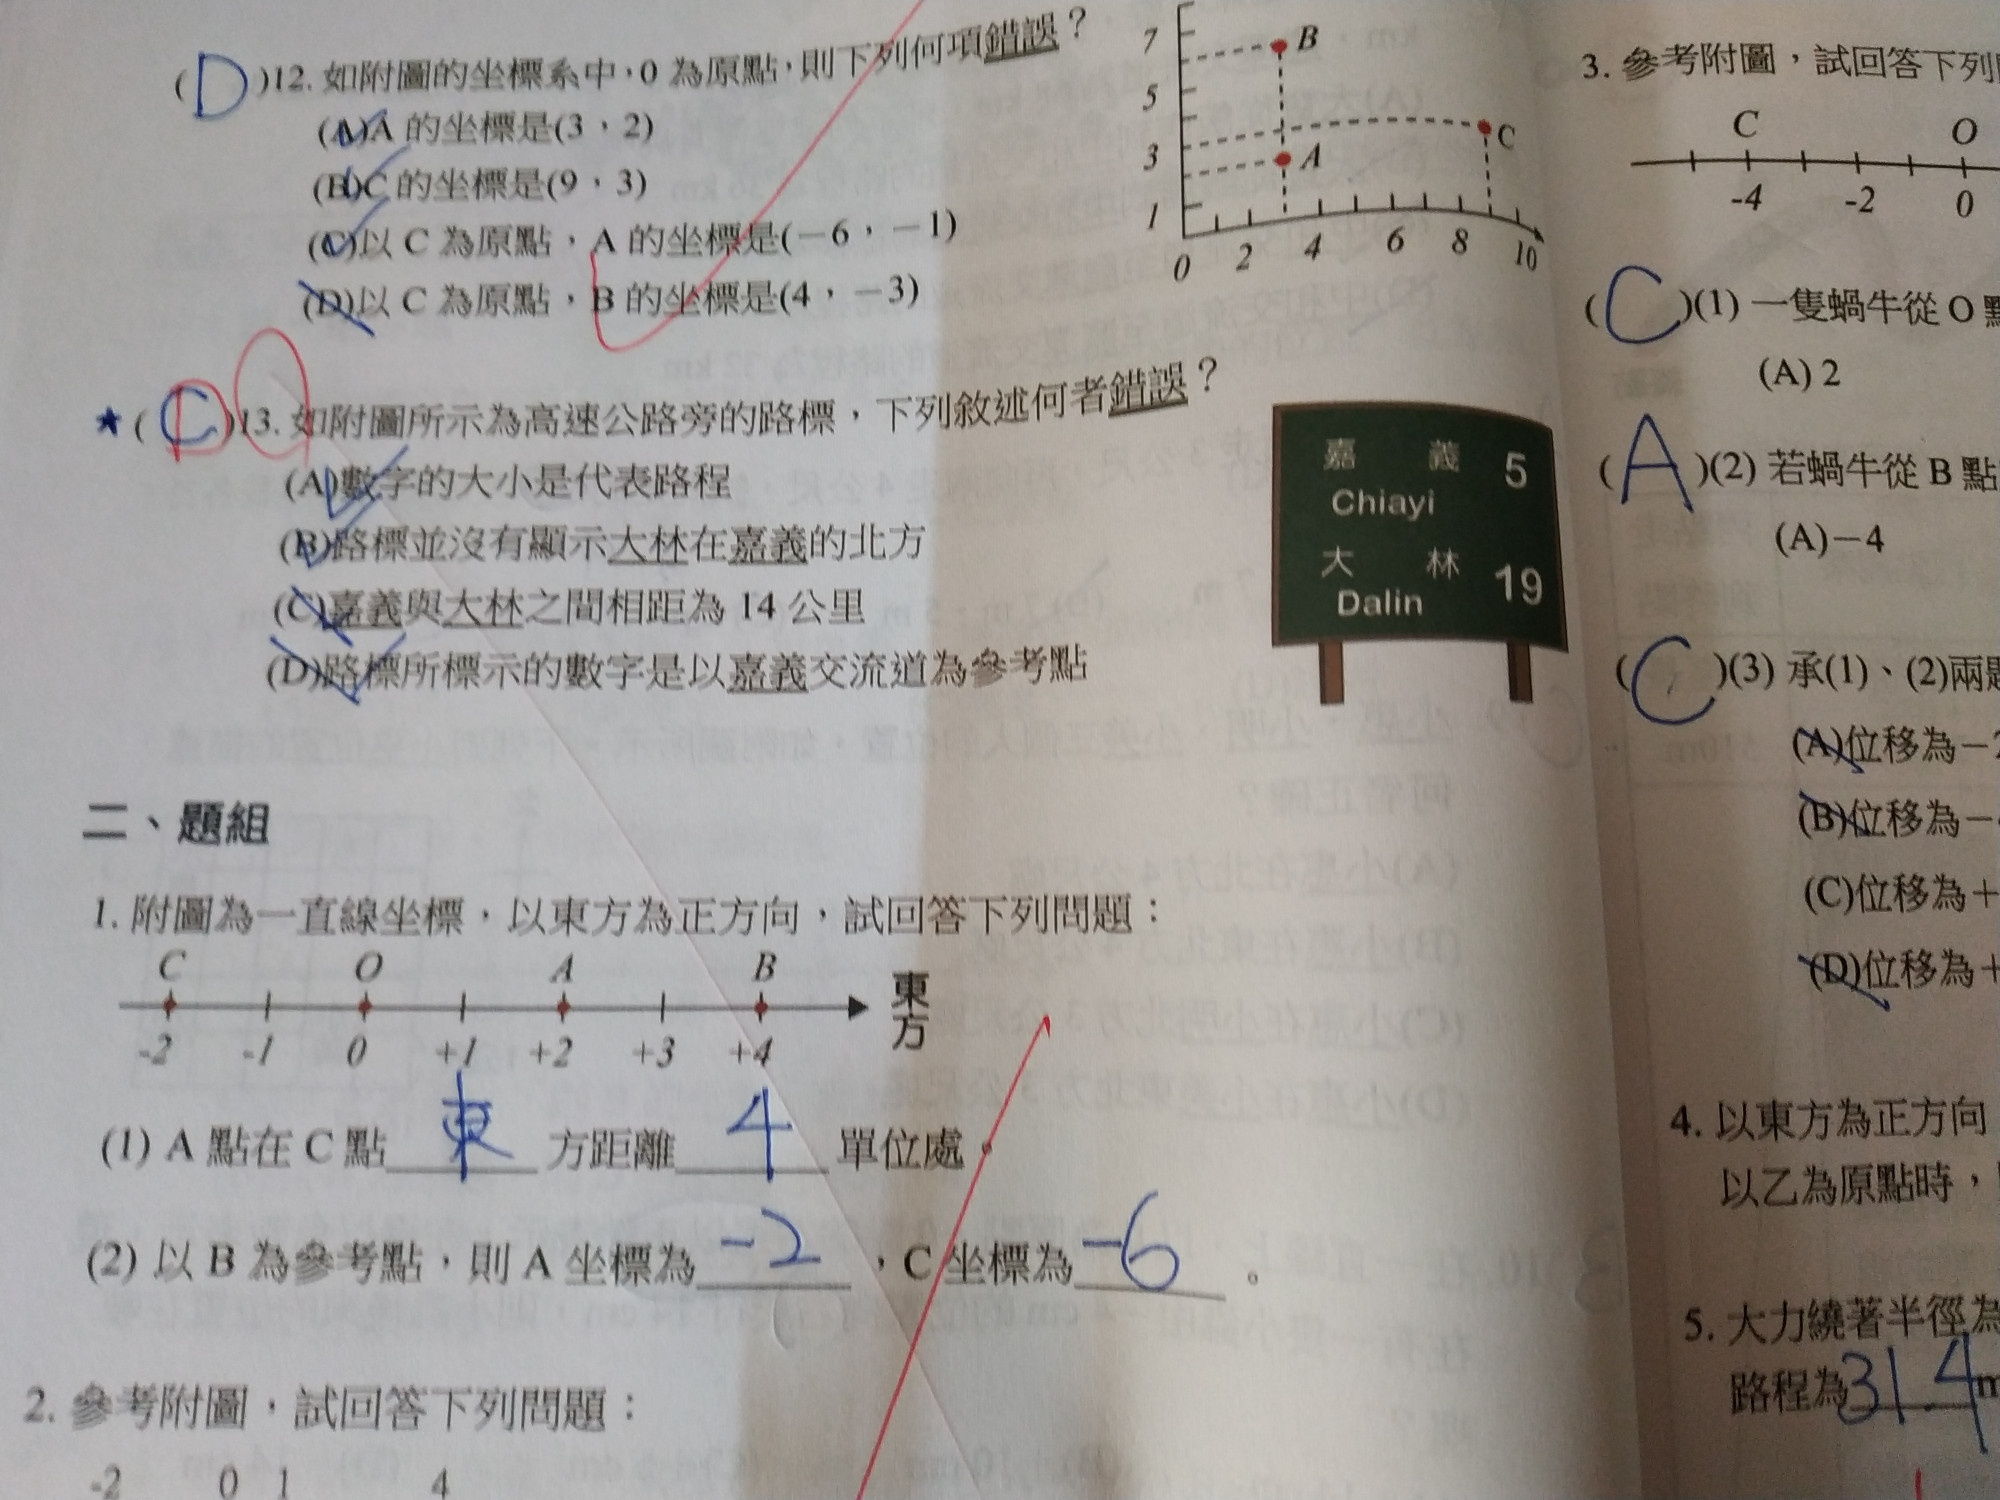 (D)12. 如附圖的坐標系中，0 為原點，則下列何項錯誤？
(A)A 的坐標是(3，2)
(B)C 的坐標是(9，3)
(C)以 C 為原點，A 的坐標是(－6，－1)
(D)以 C 為原點，B 的坐標是(4，－3)
7
B
5
C
3
A
1
0 2 4 6 8 10
★( C D )13. 如附圖所示為高速公路旁的路標，下列敘述何者錯誤？
(A)數字的大小是代表路程
(B)路標並沒有顯示大林在嘉義的北方
(C)嘉義與大林之間相距為 14 公里
(D)路標所標示的數字是以嘉義交流道為參考點
嘉義 5
Chiayi
大林 19
Dalin
二、題組
1. 附圖為一直線坐標，以東方為正方向，試回答下列問題：
C O A B
東方
-2 -1 0 +1 +2 +3 +4
(1) A 點在 C 點 東 方距離 4 單位處。
(2) 以 B 為參考點，則 A 坐標為 -2 ，C 坐標為 -6 。
2. 參考附圖，試回答下列問題：
-2 0 1 4
3. 參考附圖，試回答下列
C O
-4 -2 0
(C)(1) 一隻蝸牛從 O 點
(A) 2
(A)(2) 若蝸牛從 B 點
(A)－4
(C)(3) 承(1)、(2)兩題
(A)位移為－
(B)位移為－
(C)位移為＋
(D)位移為＋
4. 以東方為正方向
以乙為原點時，
5. 大力繞著半徑為
路程為 31.4 m